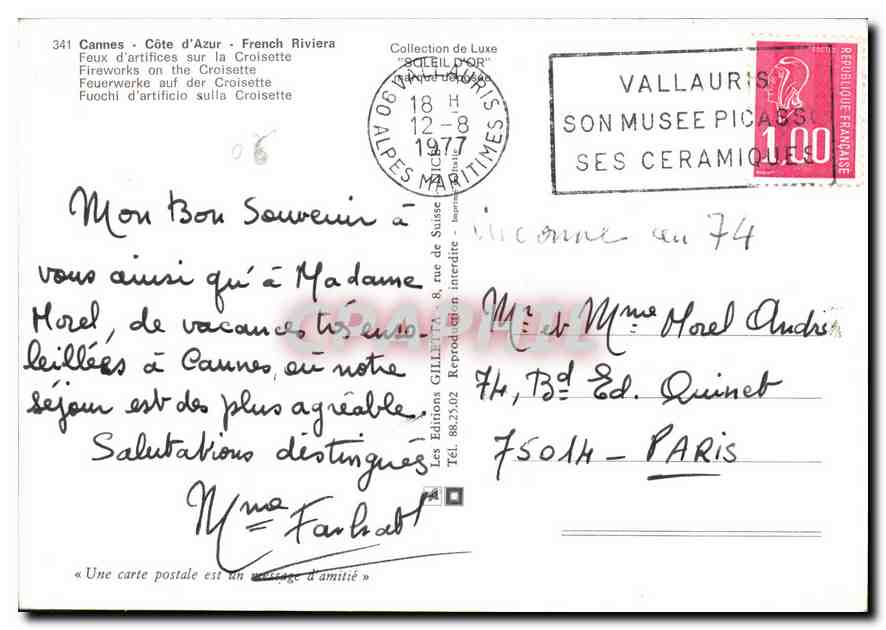 341 Cannes - Côte d'Azur - French Riviera
Feux d'artifices sur la Croisette
Fireworks on the Croisette
Feuerwerke auf der Croisette
Fuochi d'artificio sulla Croisette
Collection de Luxe
"SOLEIL D'OR"
marque déposée
VALLAURIS
18 H
12-8
1977
90 ALPES MARITIMES
VALLAURIS
SON MUSEE PICASSO
SES CERAMIQUES
POSTES
REPUBLIQUE FRANÇAISE
1.00
06
Mon Bon Souvenir à
vous ainsi qu'à Madame
Morel, de vacances très enso-
leillées à Cannes, où notre
séjour est des plus agréable.
Salutations distingués
Mme
inconnu au 74
Mr et Mme Morel André
74, Bd Ed. Quinet
75014 - PARIS
Les Editions GILLETTA - 8, rue de Suisse - NICE
Tél. 88.25.02 - Reproduction interdite - Imprimé en Italie
CPAPHIL
« Une carte postale est un message d'amitié »